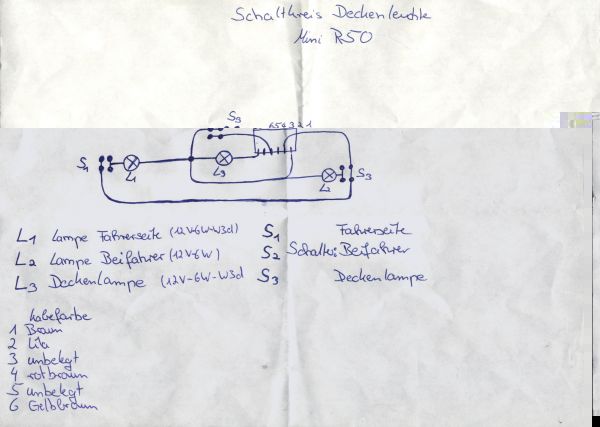 Schaltkreis Deckenleuchte
Mini R50
S3
6 5 4 3 2 1
S1
L1
L3
L2
S3
L1 Lampe Fahrerseite (12V-6W-W3d)
S1 Fahrerseite
L2 Lampe Beifahrer (12V-6W)
S2 Schalter: Beifahrer
L3 Deckenlampe (12V-6W-W3d
S3 Deckenlampe
Kabelfarbe
1 Braun
2 Lila
3 unbelegt
4 rotbraun
5 unbelegt
6 Gelbbraun